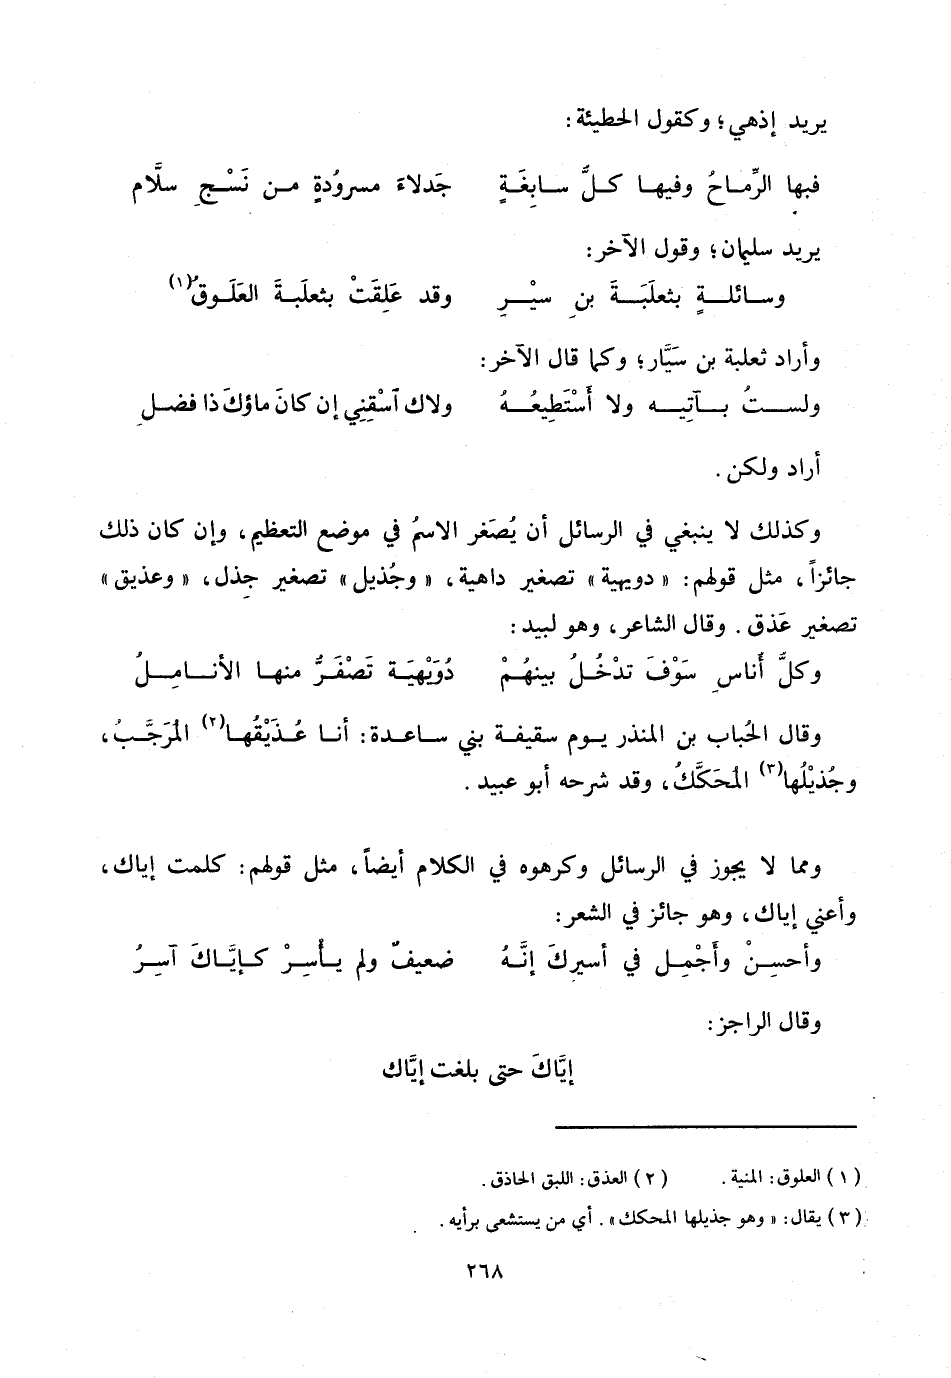 يريد إذهي؛ وكقول الحطيئة:
فبها الرِّماحُ وفيها كلُّ سابِغَةٍ جَدلاءَ مسرودَةٍ من نَسْجِ سلَّام
يريد سليمان؛ وقول الآخر:
وسائلةٍ بثعلَبَةَ بنِ سيْرٍ وقد عَلِقَتْ بثعلَبةَ العَلُوقُ(١)
وأراد ثعلبة بن سَيَّار؛ وكما قال الآخر:
ولستُ بآتِيه ولا أَسْتَطِيعُهُ ولاك آسْقِنِي إن كانَ ماؤكَ ذا فضلِ
أراد ولكن.
وكذلك لا ينبغي في الرسائل أن يُصَغر الاسمُ في موضع التعظيم، وإن كان ذلك
جائزاً، مثل قولهم: «دويهية» تصغير داهية، «وجُذيل» تصغير جِذل، «وعذيق»
تصغير عَذق. وقال الشاعر، وهو لبيد:
وكلُّ أُناسٍ سَوْفَ تدْخُلُ بينهُمْ دُوَيْهِيَة تَصْفَرُّ منها الأنامِلُ
وقال الحُباب بن المنذر يوم سقيفة بني ساعدة: أنا عُذَيْقُها(٢) المُرَجَّبُ،
وجُذيْلُها(٣) المُحَكَّكُ، وقد شرحه أبو عبيد.
ومما لا يجوز في الرسائل وكرهوه في الكلام أيضاً، مثل قولهم: كلمت إياك،
وأعني إياك، وهو جائز في الشعر:
وأحسِنْ وأَجْمِل في أسيرِكَ إنَّهُ ضعيفٌ ولم يأْسِرْ كإيَّاكَ آسِرُ
وقال الراجز:
إيَّاكَ حتى بلغت إيَّاك
(١) العلوق: المنية. (٢) العذق: اللبق الحاذق.
(٣) يقال: «وهو جذيلها المحكك». أي من يستشعى برأيه.
٢٦٨